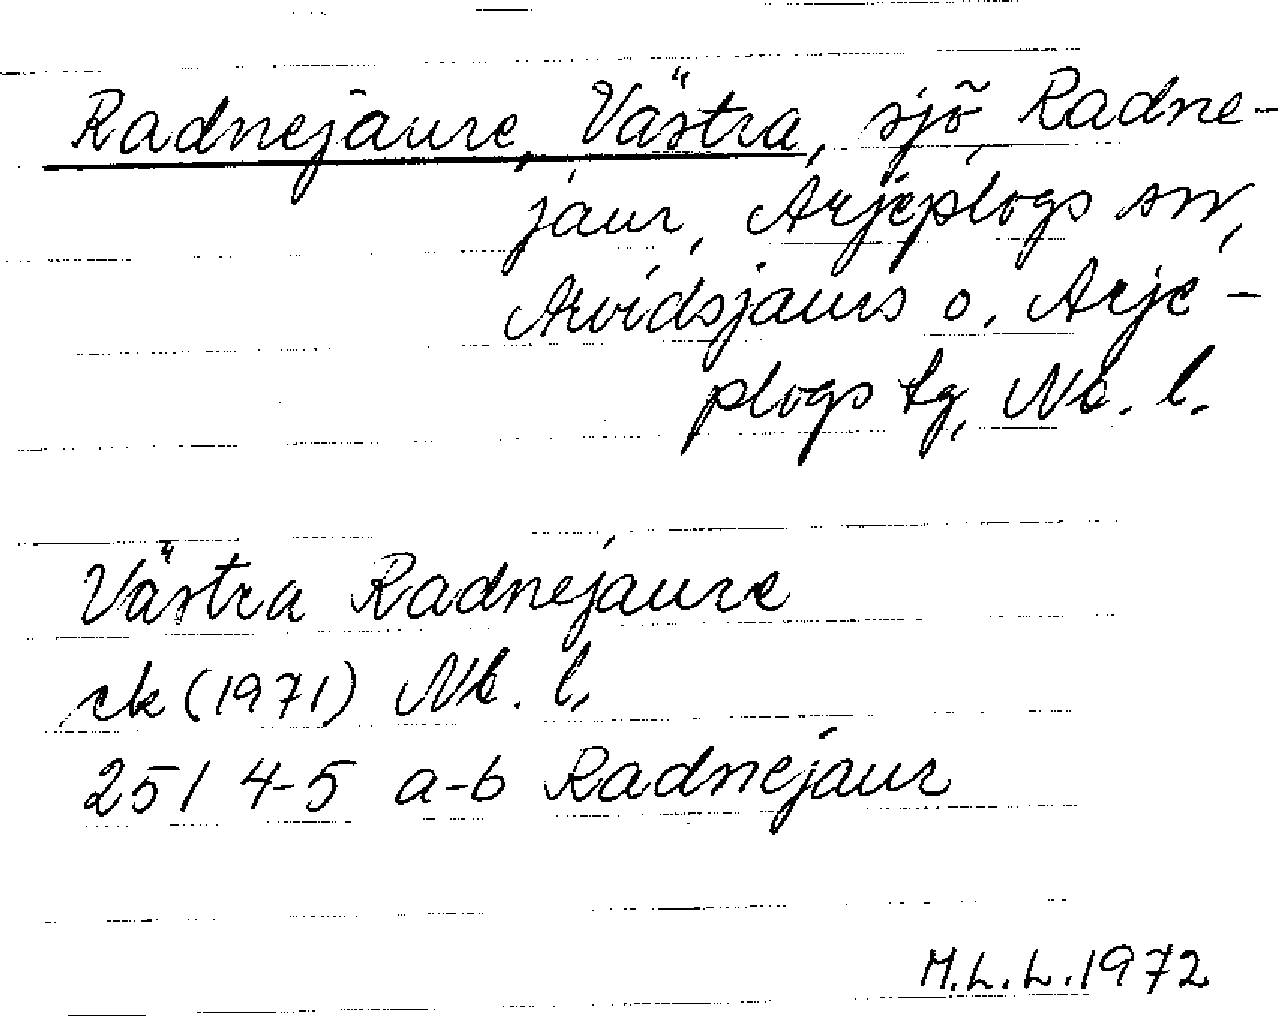 Radnejaure, Västra, sjö, Radne-
jaur, Arjeplogs sn,
Arvidsjaurs o. Arje-
plogs tg, Nb. l.
Västra Radnejaure
ek (1971) Nb. l.
25 I 4-5 a-b Radnejaur
M.L.L. 1972